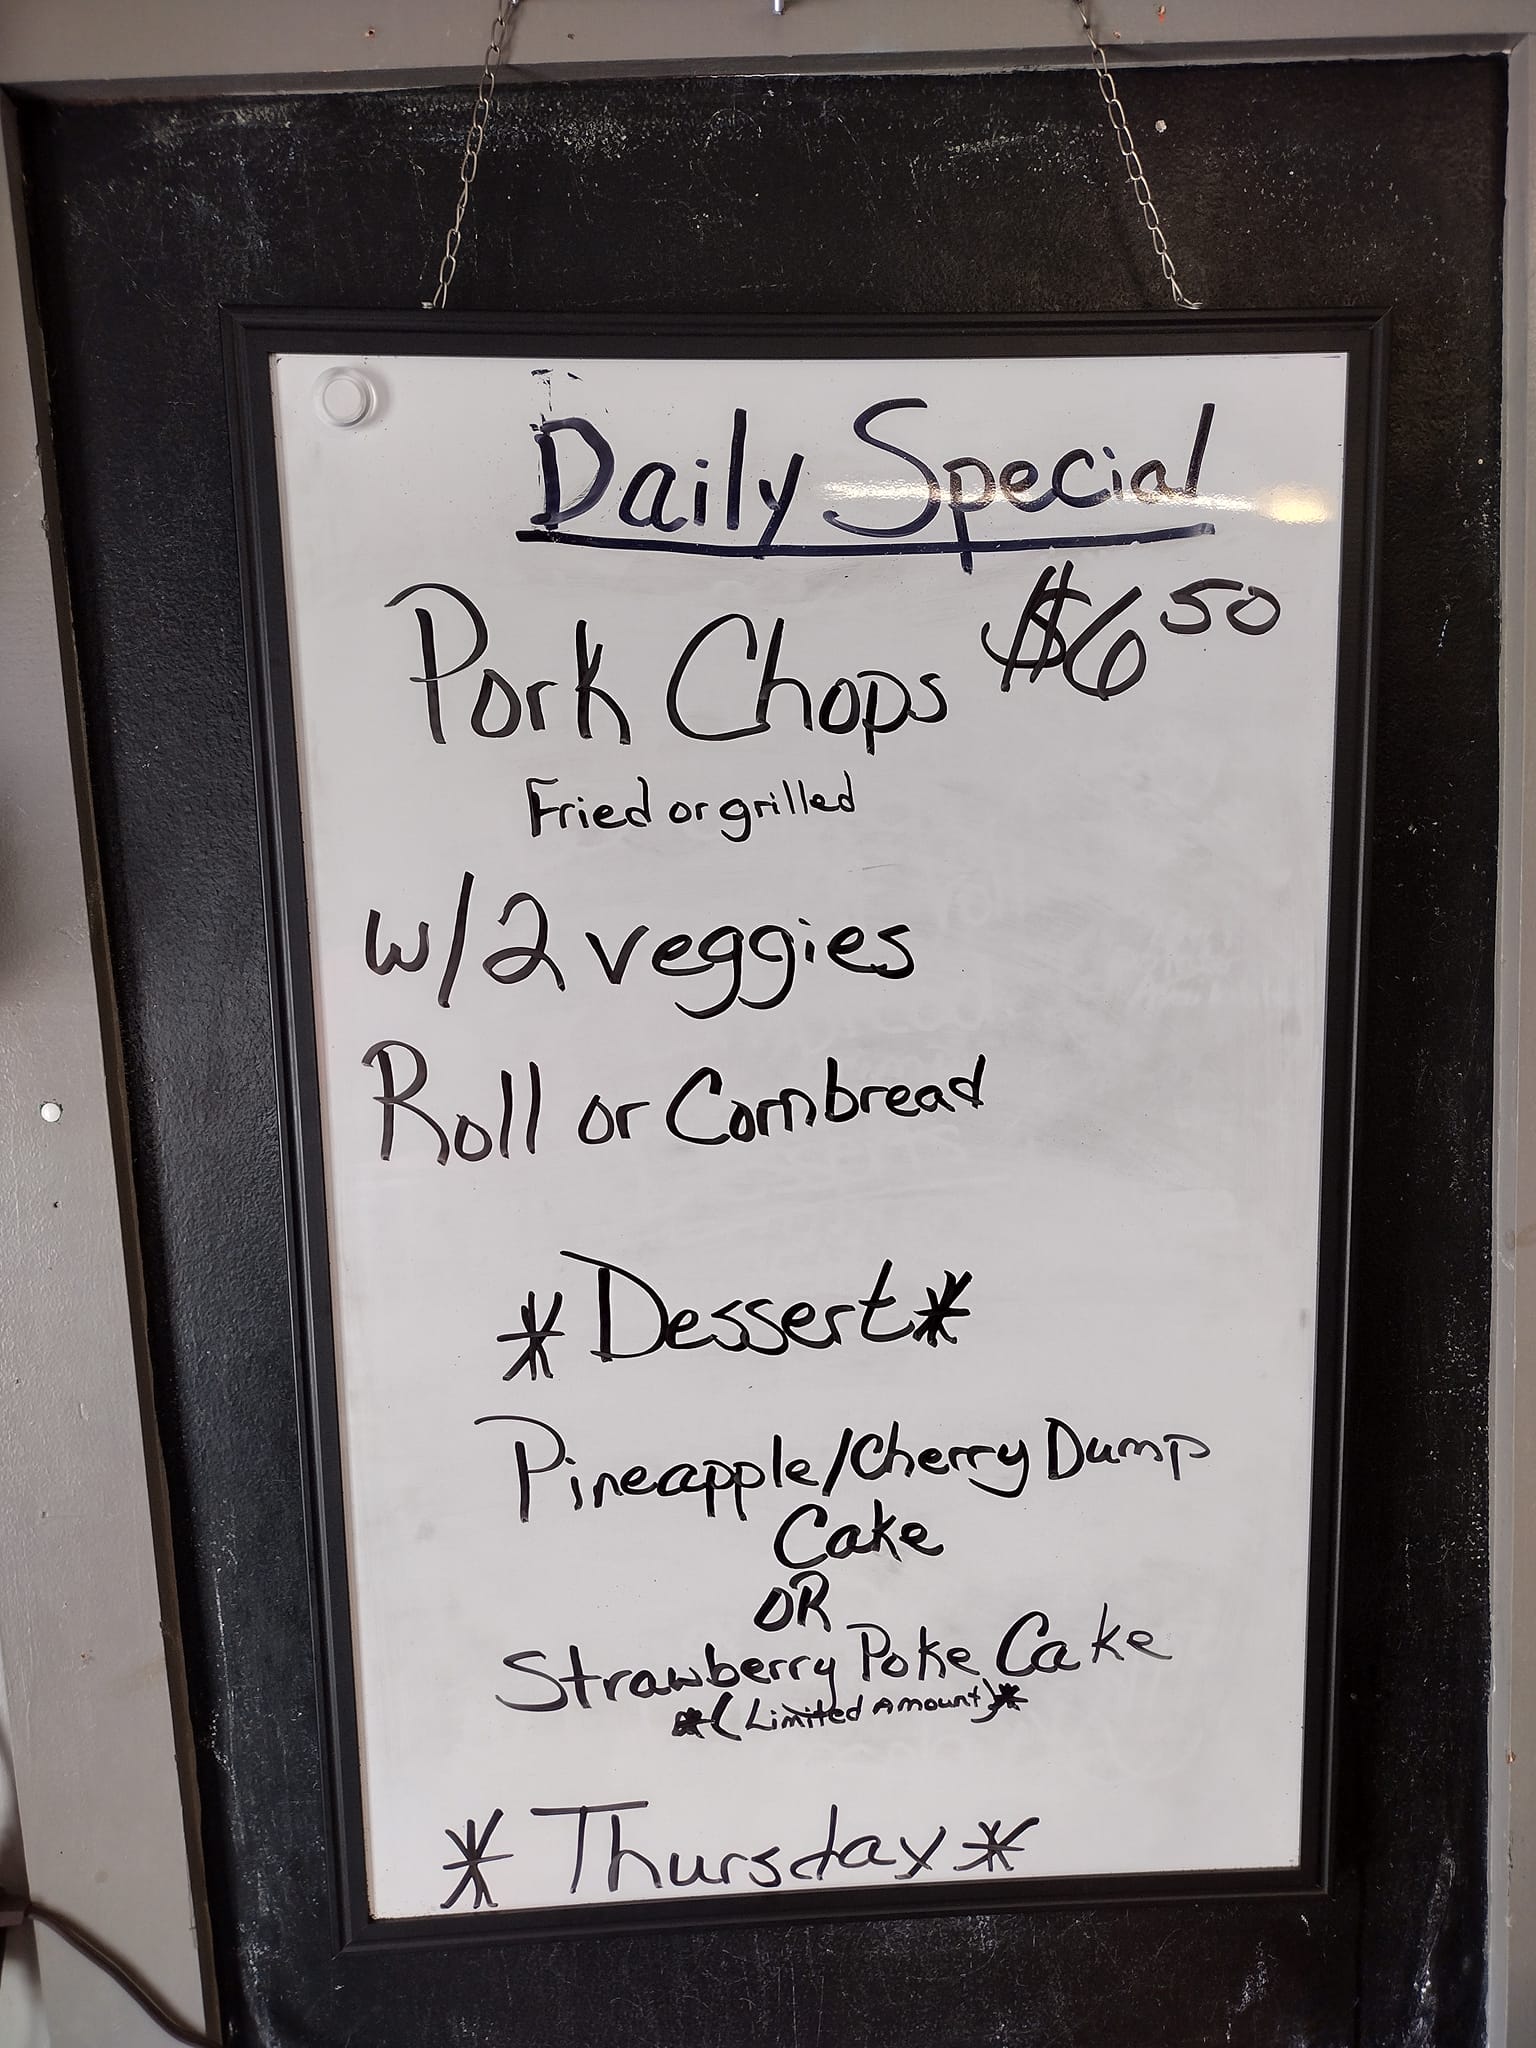 Daily Special
Pork Chops $6 50
Fried or grilled
w/2 veggies
Roll or Cornbread
*Dessert*
Pineapple/Cherry Dump
Cake
OR
Strawberry Poke Cake
*(Limited Amount)*
*Thursday*